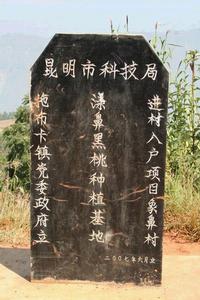 昆明市科技局
进村入户项目象鼻村
漾鼻黑桃种植基地
拖布卡镇党委政府立
二00七年六月立